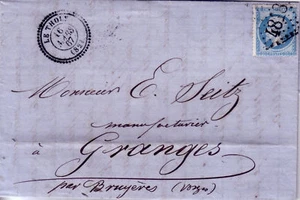 LE THOLY
16
67
(82)
Monsieur E. Seitz
manufacturier
à
Granges
par Bruyères (Vosges)